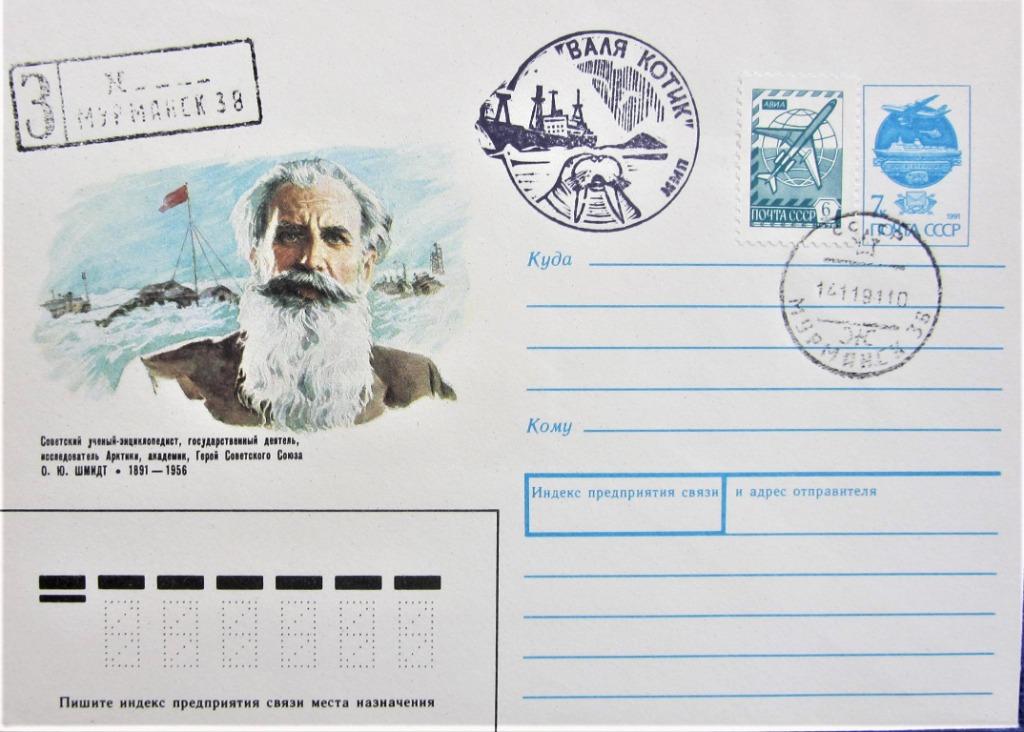 З
МУРМАНСК 38
"ВАЛЯ КОТИК"
ММП
АВИА
ПОЧТА СССР 6
7к
1991
ПОЧТА СССР
СССР
14119110
ЭЖ
МУРМАНСК 36
Куда
Кому
Индекс предприятия связи и адрес отправителя
Советский ученый-энциклопедист, государственный деятель,
исследователь Арктики, академик, Герой Советского Союза
О. Ю. ШМИДТ • 1891—1956
Пишите индекс предприятия связи места назначения